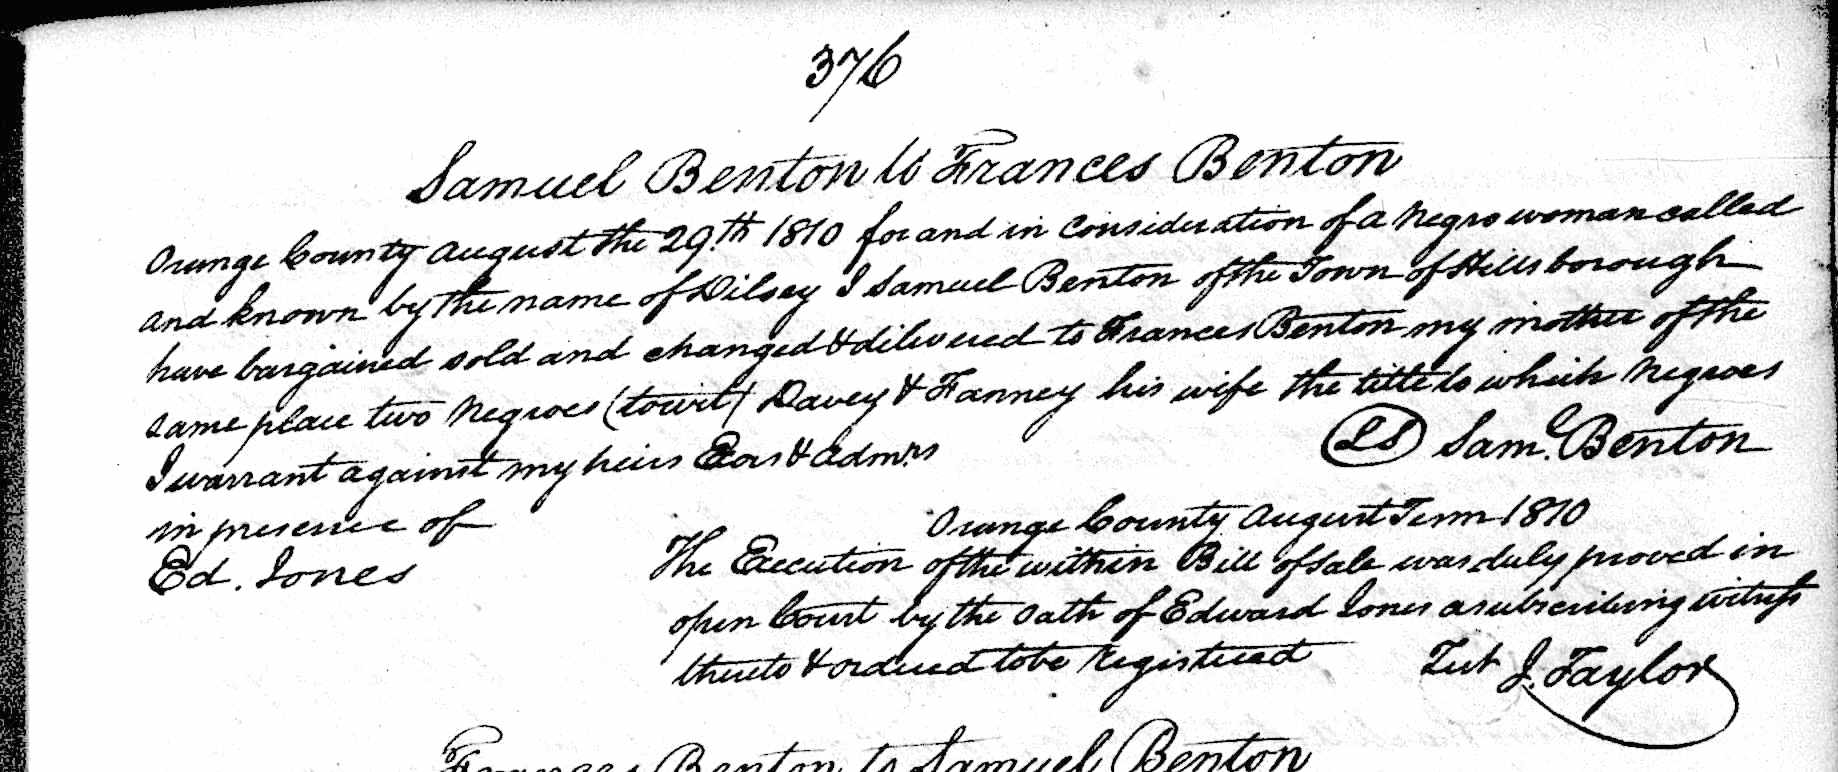 376
Samuel Benton to Frances Benton
Orange County August the 29th 1810 for and in Consideration of a Negro woman called
and known by the name of Dilsey I Samuel Benton of the Town of Hillsborough
have bargained sold and changed & delivered to Frances Benton my mother of the
same place two Negroes (towit) Davey & Fanney his wife the title to which Negroes
I warrant against my heirs Exors & Admrs
(LS) Saml. Benton
in presence of
Ed. Jones
Orange County August Term 1810
The Execution of the within Bill of sale was duly proved in
open Court by the oath of Edward Jones a subscribing witness
thereto & ordered to be Registered
Test J. Taylor
Frances Benton to Samuel Benton